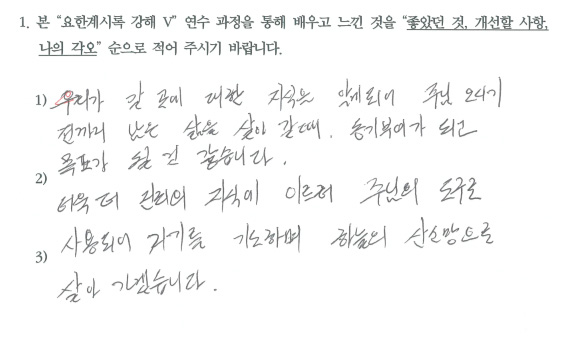 1. 본 “요한계시록 강해 V” 연수 과정을 통해 배우고 느낀 것을 “좋았던 것, 개선할 사항,
나의 각오” 순으로 적어 주시기 바랍니다.
1) 우리가 갈 곳에 대한 지식을 알게되어 주님 오시기
전까지 남은 삶을 살아 갈때, 동기부여가 되고
목표가 될 것 같습니다.
2)
더욱 더 진리의 지식에 이르러 주님의 도구로
사용되어 지기를 기도하며 하늘의 산소망으로
3)
살아 가겠습니다.